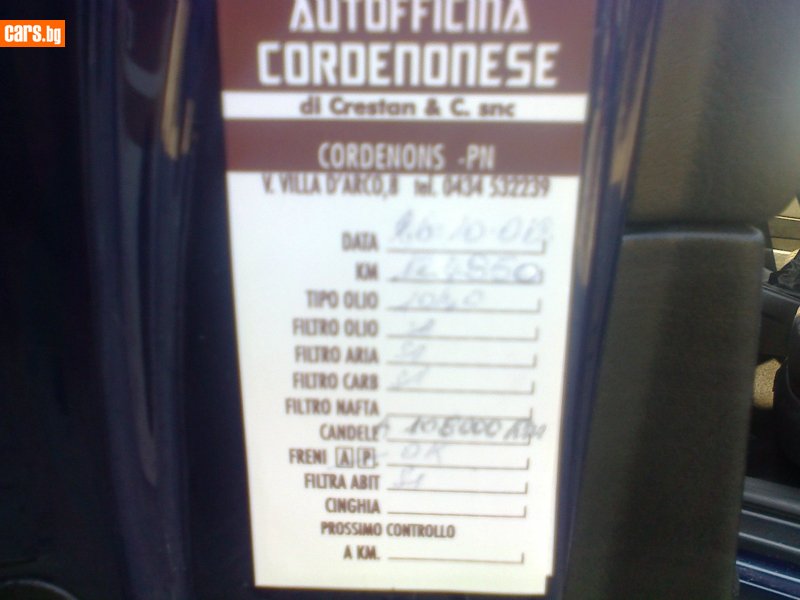 cars.bg
AUTOFFICINA
CORDENONESE
di Crestan & C. snc
CORDENONS -PN
V. VILLA D'ARCO,8 tel. 0434 532239
DATA
KM
TIPO OLIO
FILTRO OLIO
FILTRO ARIA
FILTRO CARB
FILTRO NAFTA
CANDELE
FRENI A P. OK
FILTRA ABIT
CINGHIA
PROSSIMO CONTROLLO
A KM.